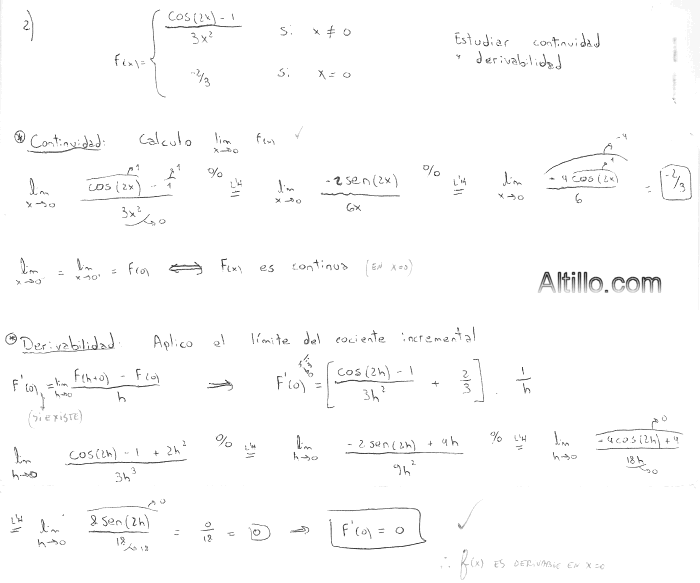 2)
F(x) = { cos(2x) - 1 / 3x² si x ≠ 0
-2/3 si x = 0
Estudiar continuidad
y derivabilidad
* Continuidad: Calculo lim x→0 F(x) ✓
lim x→0 cos(2x) - 1 / 3x² 0/0 L'H = lim x→0 -2 sen(2x) / 6x 0/0 L'H = lim x→0 -4 cos(2x) / 6 = -2/3
lim x→0⁻ = lim x→0⁺ = F(0) ⟺ F(x) es continua (EN x=0)
Altillo.com
* Derivabilidad: Aplico el límite del cociente incremental
F'(0) = lim h→0 F(h+0) - F(0) / h ⇒ F'(0) = [ cos(2h) - 1 / 3h² + 2/3 ] . 1/h
(SI EXISTE)
lim h→0 cos(2h) - 1 + 2h² / 3h³ 0/0 L'H = lim h→0 -2 sen(2h) + 4h / 9h² 0/0 L'H = lim h→0 -4 cos(2h) + 4 / 18h
L'H = lim h→0 8 sen(2h) / 18 = 0/18 = 0 ⇒ F'(0) = 0 ✓
∴ f(x) ES DERIVABLE EN x=0